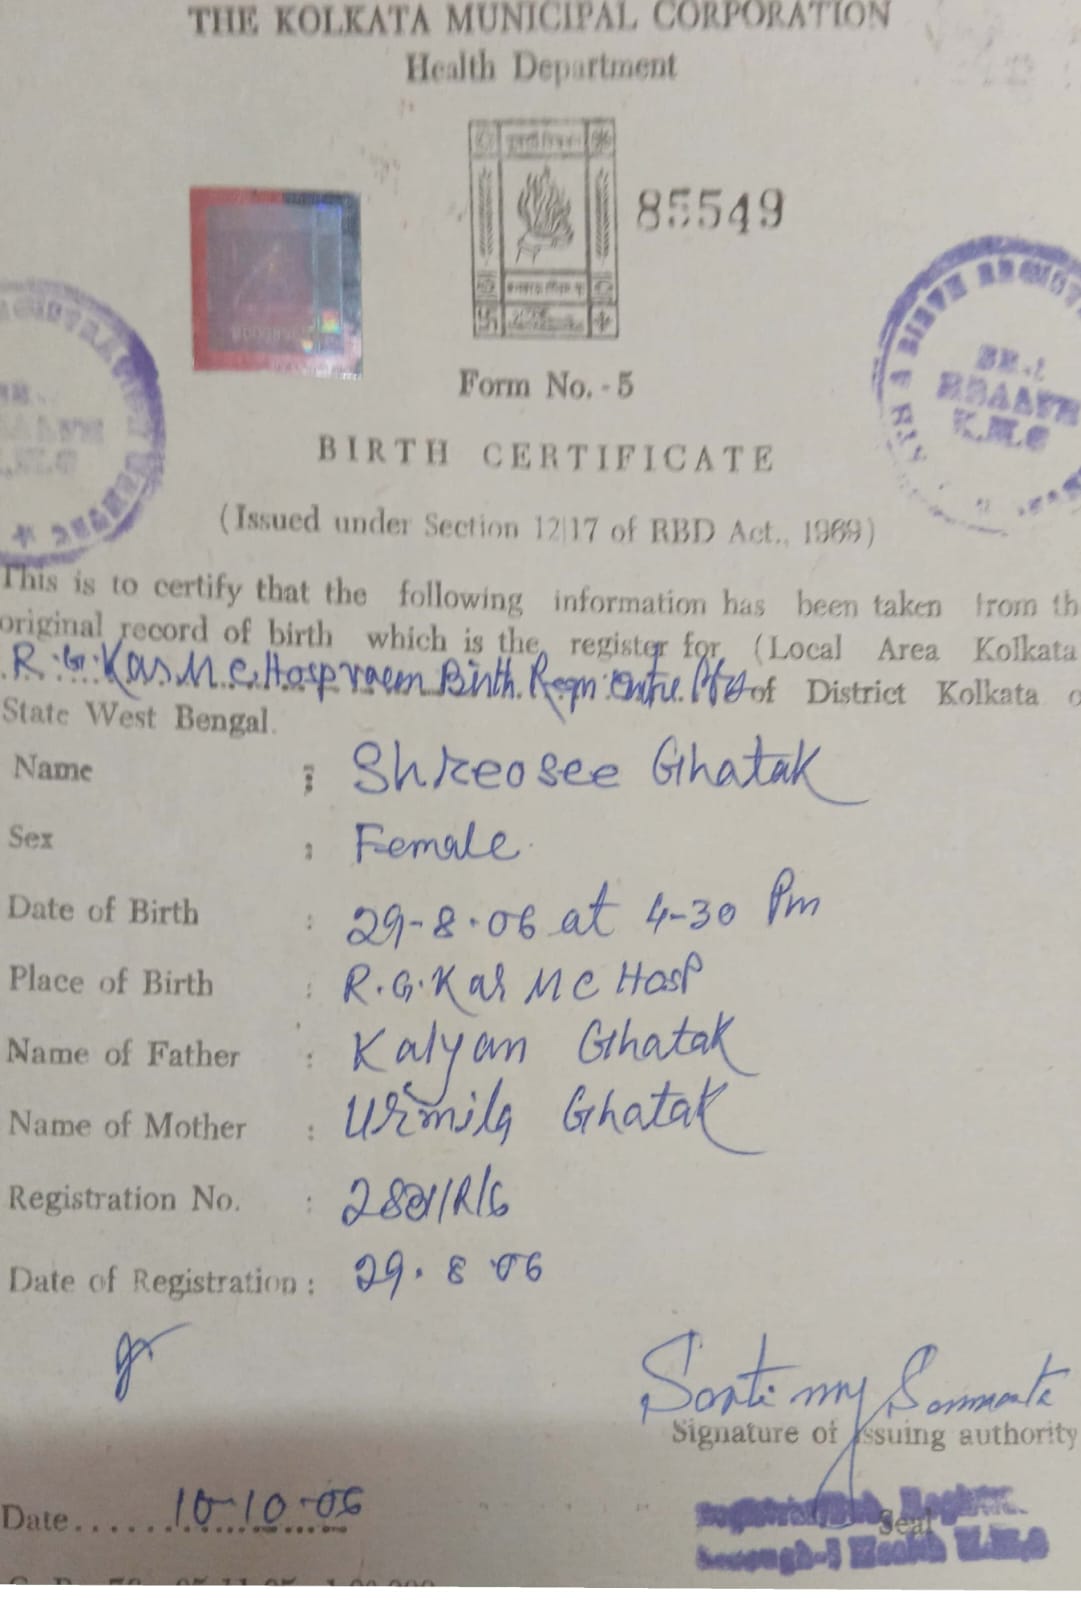 THE KOLKATA MUNICIPAL CORPORATION
Health Department
85549
Form No. - 5
BIRTH CERTIFICATE
(Issued under Section 12|17 of RBD Act., 1969)
This is to certify that the following information has been taken from th
original record of birth which is the register for (Local Area Kolkata
R.G.Kar M.C.Hosp Birth Regn of District Kolkata o
State West Bengal.
Name : Shreosee Ghatak
Sex : Female
Date of Birth : 29-8-06 at 4-30 Pm
Place of Birth : R.G.Kar M C Hosp
Name of Father : Kalyan Ghatak
Name of Mother : Urmila Ghatak
Registration No. :
Date of Registration : 29. 8 06
Signature of issuing authority
Date...... 10-10-06
Seal